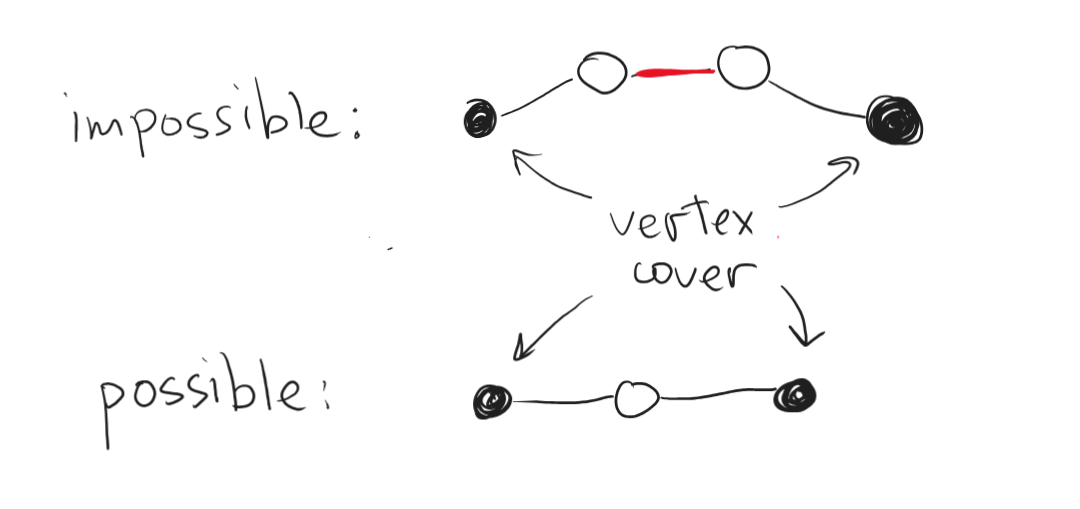 impossible:
vertex
cover
possible: